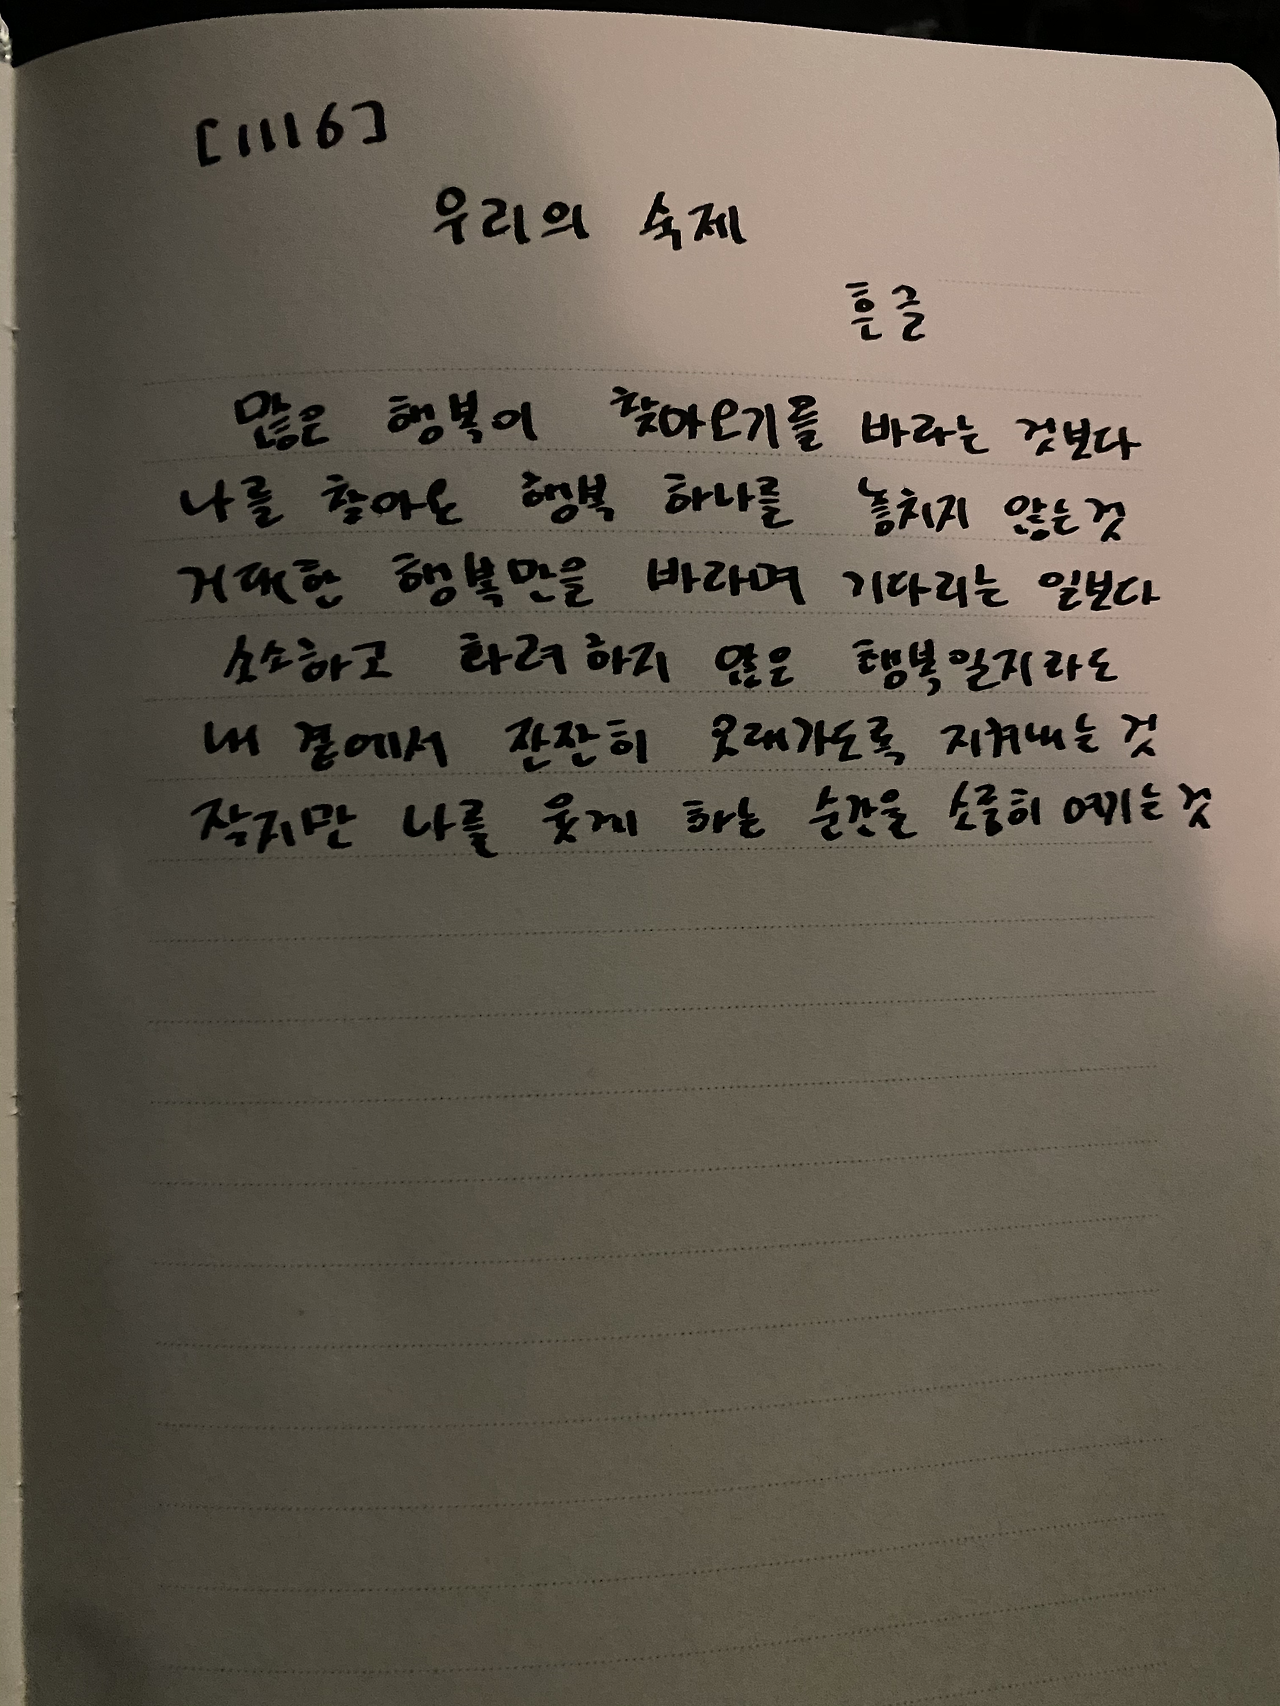 [1116]
우리의 숙제
흔글
많은 행복이 찾아오기를 바라는 것보다
나를 찾아온 행복 하나를 놓치지 않는것
거대한 행복만을 바라며 기다리는 일보다
소소하고 화려하지 않은 행복일지라도
내 곁에서 잔잔히 오래가도록 지켜내는 것
작지만 나를 웃게 하는 순간을 소중히 여기는 것